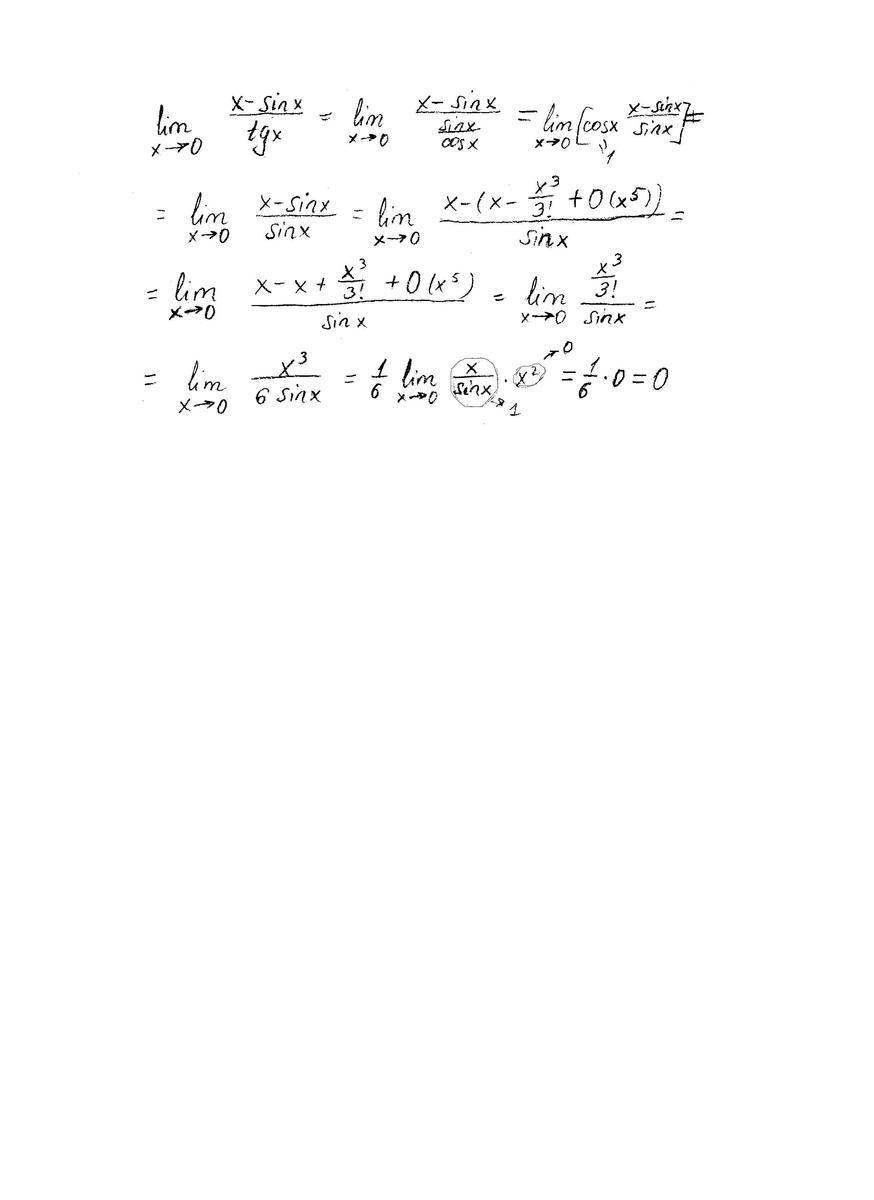 lim x→0 (x-sinx)/(tgx) = lim x→0 (x-sinx)/(sinx/cosx) = lim x→0 [cosx (x-sinx)/(sinx)] =
= lim x→0 (x-sinx)/(sinx) = lim x→0 (x-(x-x³/3!+O(x⁵)))/(sinx) =
= lim x→0 (x-x+x³/3!+O(x⁵))/(sinx) = lim x→0 (x³/3!)/(sinx) =
= lim x→0 x³/(6 sinx) = 1/6 lim x→0 (x/sinx)→1 · x²→0 = 1/6 · 0 = 0